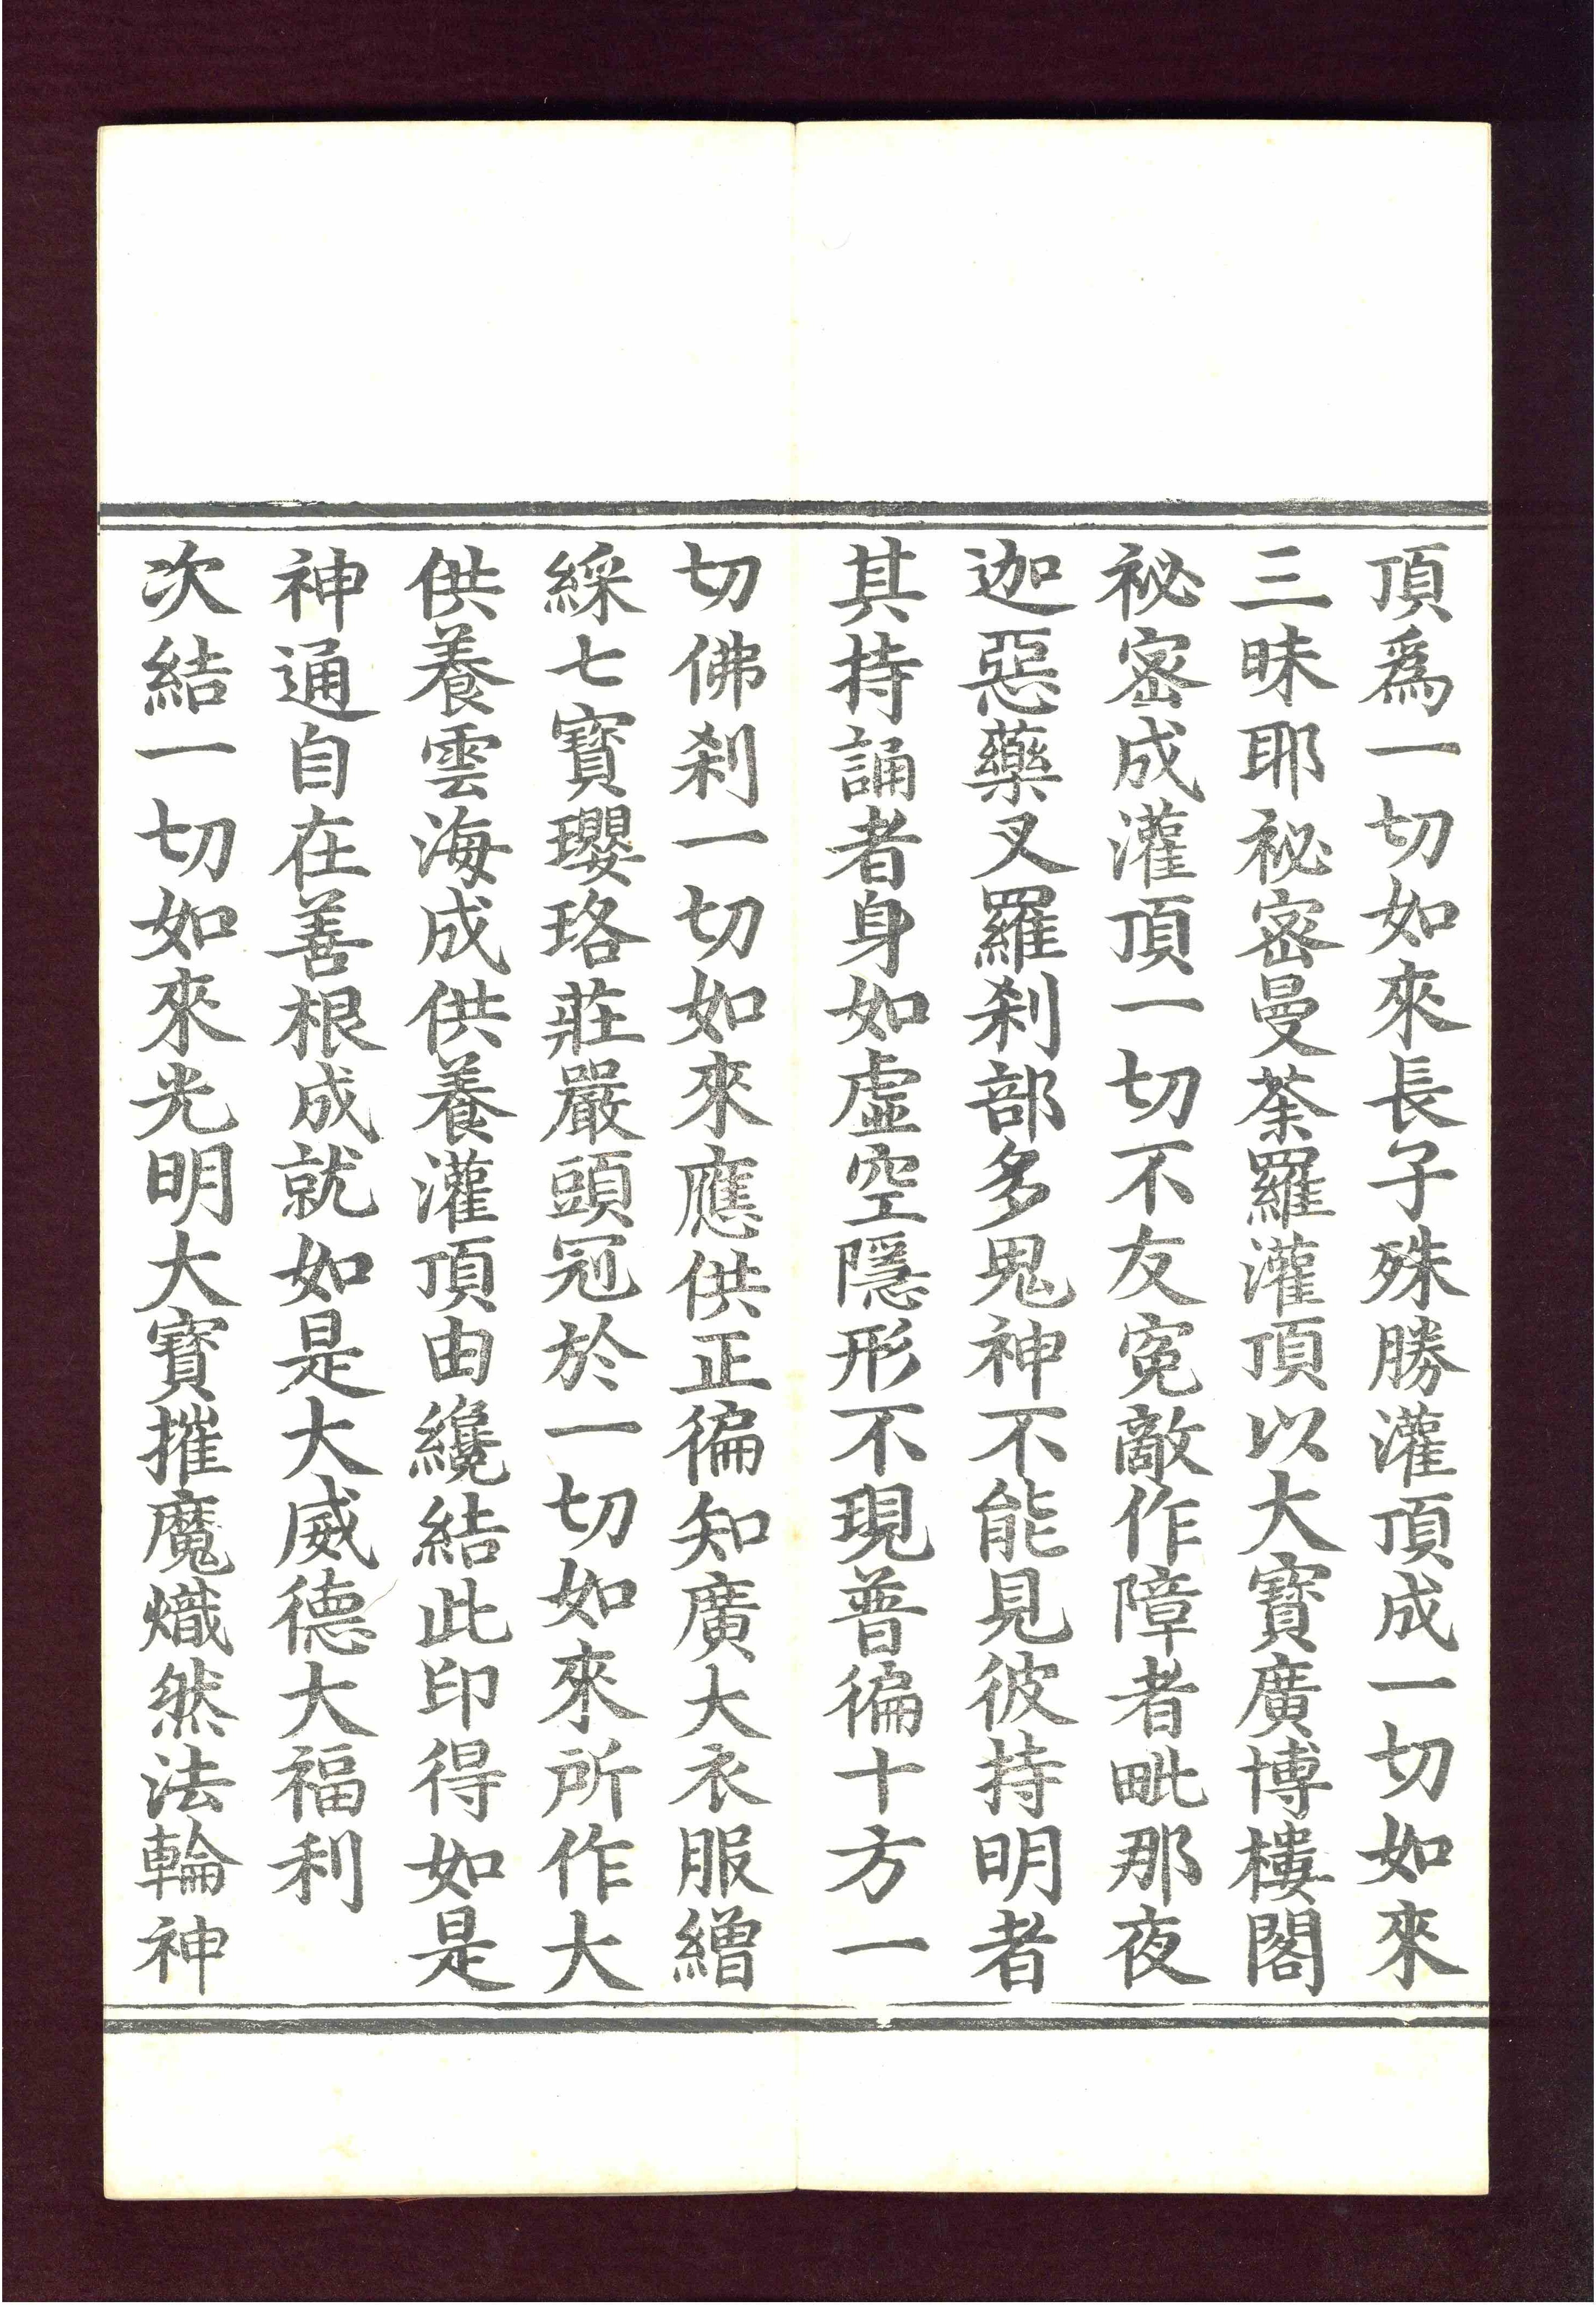 頂爲一切如來長子殊勝灌頂成一切如來
三昧耶祕密曼荼羅灌頂以大寶廣博樓閣
祕密成灌頂一切不友寃敵作障者毗那夜
迦惡藥叉羅刹部多鬼神不能見彼持明者
其持誦者身如虛空隱形不現普徧十方一
切佛刹一切如來應供正徧知廣大衣服繒
綵七寶瓔珞莊嚴頭冠於一切如來所作大
供養雲海成供養灌頂由纔結此印得如是
神通自在善根成就如是大威德大福利
次結一切如來光明大寶摧魔熾然法輪神